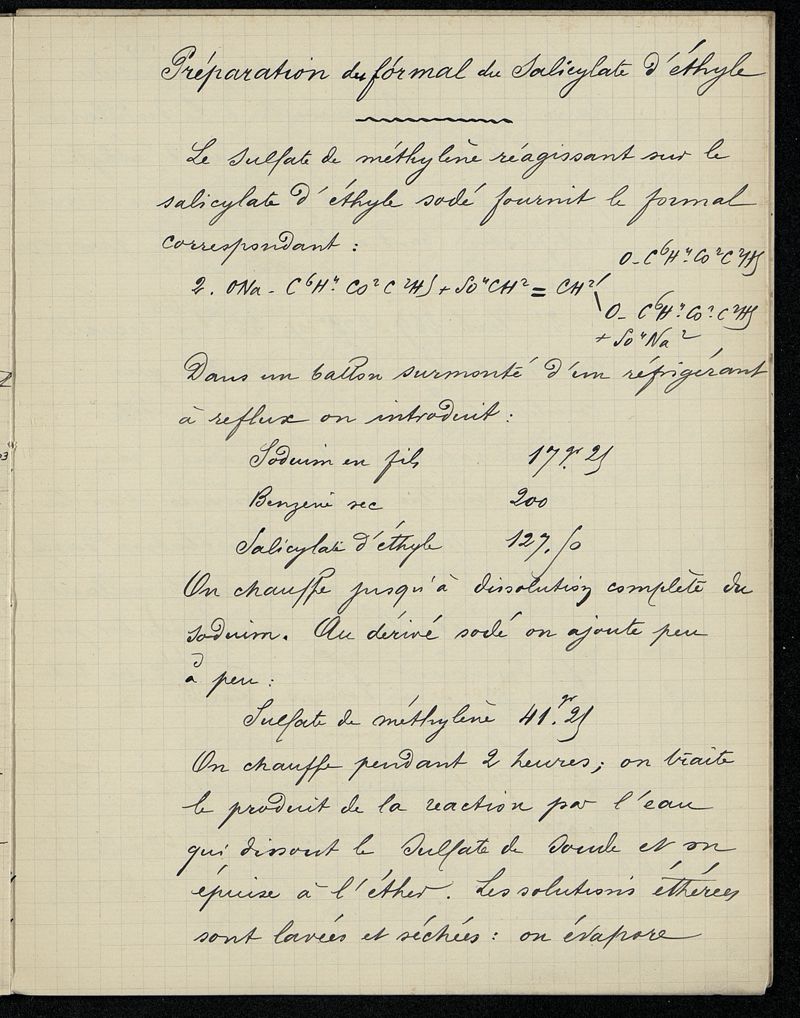 Préparation du formal du Salicylate d'éthyle
Le sulfate de méthylène réagissant sur le
salicylate d'éthyle sodé fournit le formal
correspondant :
O-C⁶H⁴.CO²C²H⁵
2. ONa - C⁶H⁴.CO²C²H⁵ + SO⁴CH² = CH²
O-C⁶H⁴.CO².C²H⁵
+ SO⁴Na²
Dans un ballon surmonté d'un réfrigérant
à reflux on introduit :
Sodium en fils 17gr.25
Benzène sec 200
Salicylate d'éthyle 127.50
On chauffe jusqu'à dissolution complète du
sodium. Au dérivé sodé on ajoute peu
à peu :
Sulfate de méthylène 41.gr25
On chauffe pendant 2 heures ; on traite
le produit de la reaction par l'eau
qui dissout le sulfate de soude et on
épuise à l'éther. Les solutions éthérées
sont lavées et séchées : on évapore